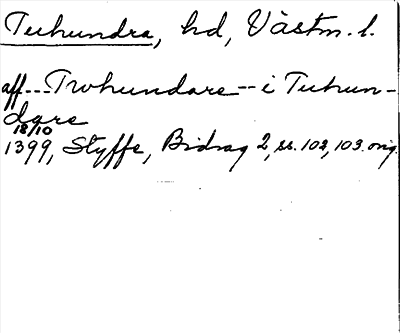 Tuhundra, hd, Västm. l.
aff---Twhundare--i Tuhun-
dare
18/10
1399, Styffe, Bidrag 2, ss. 102, 103. orig.